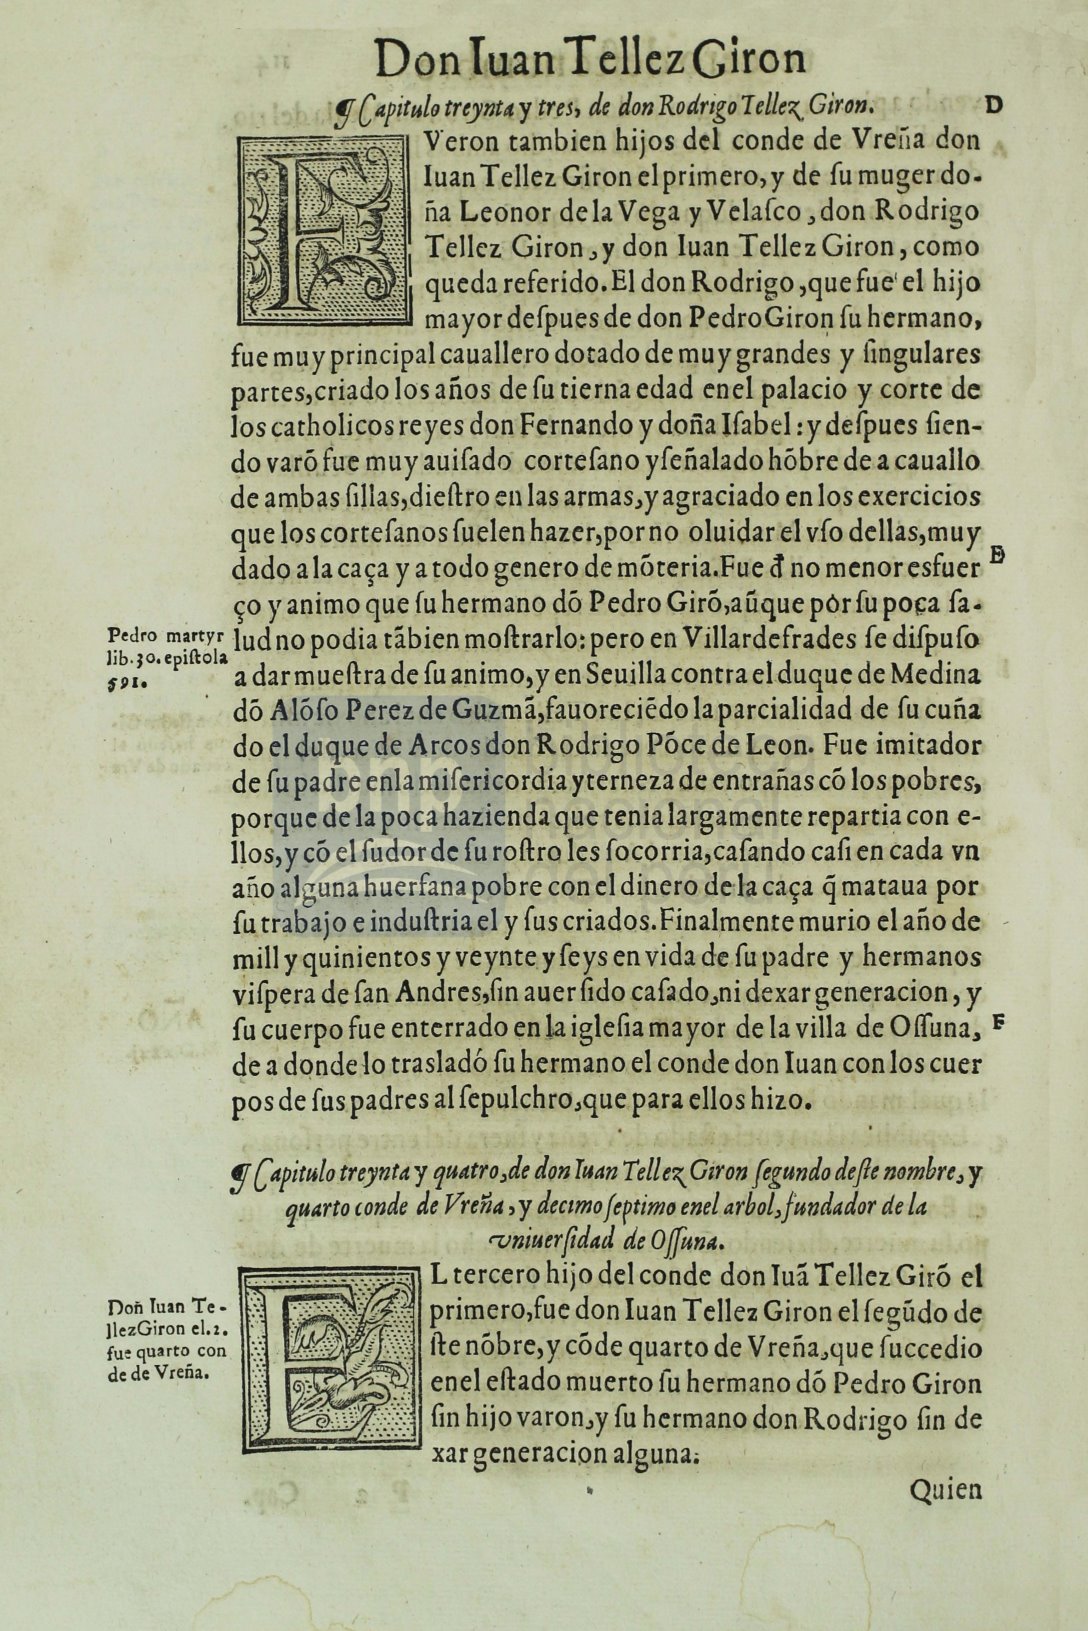 Don Iuan Tellez Giron
¶ Capitulo treynta y tres, de don Rodrigo Tellez Giron.
D
FVeron tambien hijos del conde de Vreña don
Iuan Tellez Giron el primero, y de ſu muger do-
ña Leonor de la Vega y Velaſco, don Rodrigo
Tellez Giron, y don Iuan Tellez Giron, como
queda referido. El don Rodrigo, que fue el hijo
mayor deſpues de don Pedro Giron ſu hermano,
fue muy principal cauallero dotado de muy grandes y ſingulares
partes, criado los años de ſu tierna edad enel palacio y corte de
los catholicos reyes don Fernando y doña Iſabel: y deſpues ſien-
do varõ fue muy auiſado corteſano y ſeñalado hõbre de a cauallo
de ambas ſillas, dieſtro en las armas, y agraciado en los exercicios
que los corteſanos ſuelen hazer, por no oluidar el vſo dellas, muy
E
dado a la caça y a todo genero de mõteria. Fue đ no menor esfuer
ço y animo que ſu hermano dõ Pedro Girõ, aũque por ſu poca ſa-
lud no podia tãbien moſtrarlo: pero en Villardefrades ſe diſpuſo
Pedro martyr
lib. 30. epiſtola
591.
a dar mueſtra de ſu animo, y en Seuilla contra el duque de Medina
dõ Alõſo Perez de Guzmã, fauoreciẽdo la parcialidad de ſu cuña
do el duque de Arcos don Rodrigo Põce de Leon. Fue imitador
de ſu padre enla miſericordia y terneza de entrañas cõ los pobres,
porque de la poca hazienda que tenia largamente repartia con e-
llos, y cõ el ſudor de ſu roſtro les ſocorria, caſando caſi en cada vn
año alguna huerfana pobre con el dinero de la caça q̃ mataua por
ſu trabajo e induſtria el y ſus criados. Finalmente murio el año de
mill y quinientos y veynte y ſeys en vida de ſu padre y hermanos
viſpera de ſan Andres, ſin auer ſido caſado, ni dexar generacion, y
ſu cuerpo fue enterrado en la igleſia mayor de la villa de Oſſuna,
F
de a donde lo trasladó ſu hermano el conde don Iuan con los cuer
pos de ſus padres al ſepulchro, que para ellos hizo.
¶ Capitulo treynta y quatro, de don Iuan Tellez Giron ſegundo deſte nombre, y
quarto conde de Vreña, y decimo ſeptimo enel arbol, fundador de la
vniuerſidad de Oſſuna.
EL tercero hijo del conde don Iuã Tellez Girõ el
primero, fue don Iuan Tellez Giron el ſegũdo de
ſte nõbre, y cõde quarto de Vreña, que ſuccedio
enel eſtado muerto ſu hermano dõ Pedro Giron
ſin hijo varon, y ſu hermano don Rodrigo ſin de
xar generacion alguna.
Don Iuan Te-
llez Giron el. 2.
fue quarto con
de de Vreña.
Quien